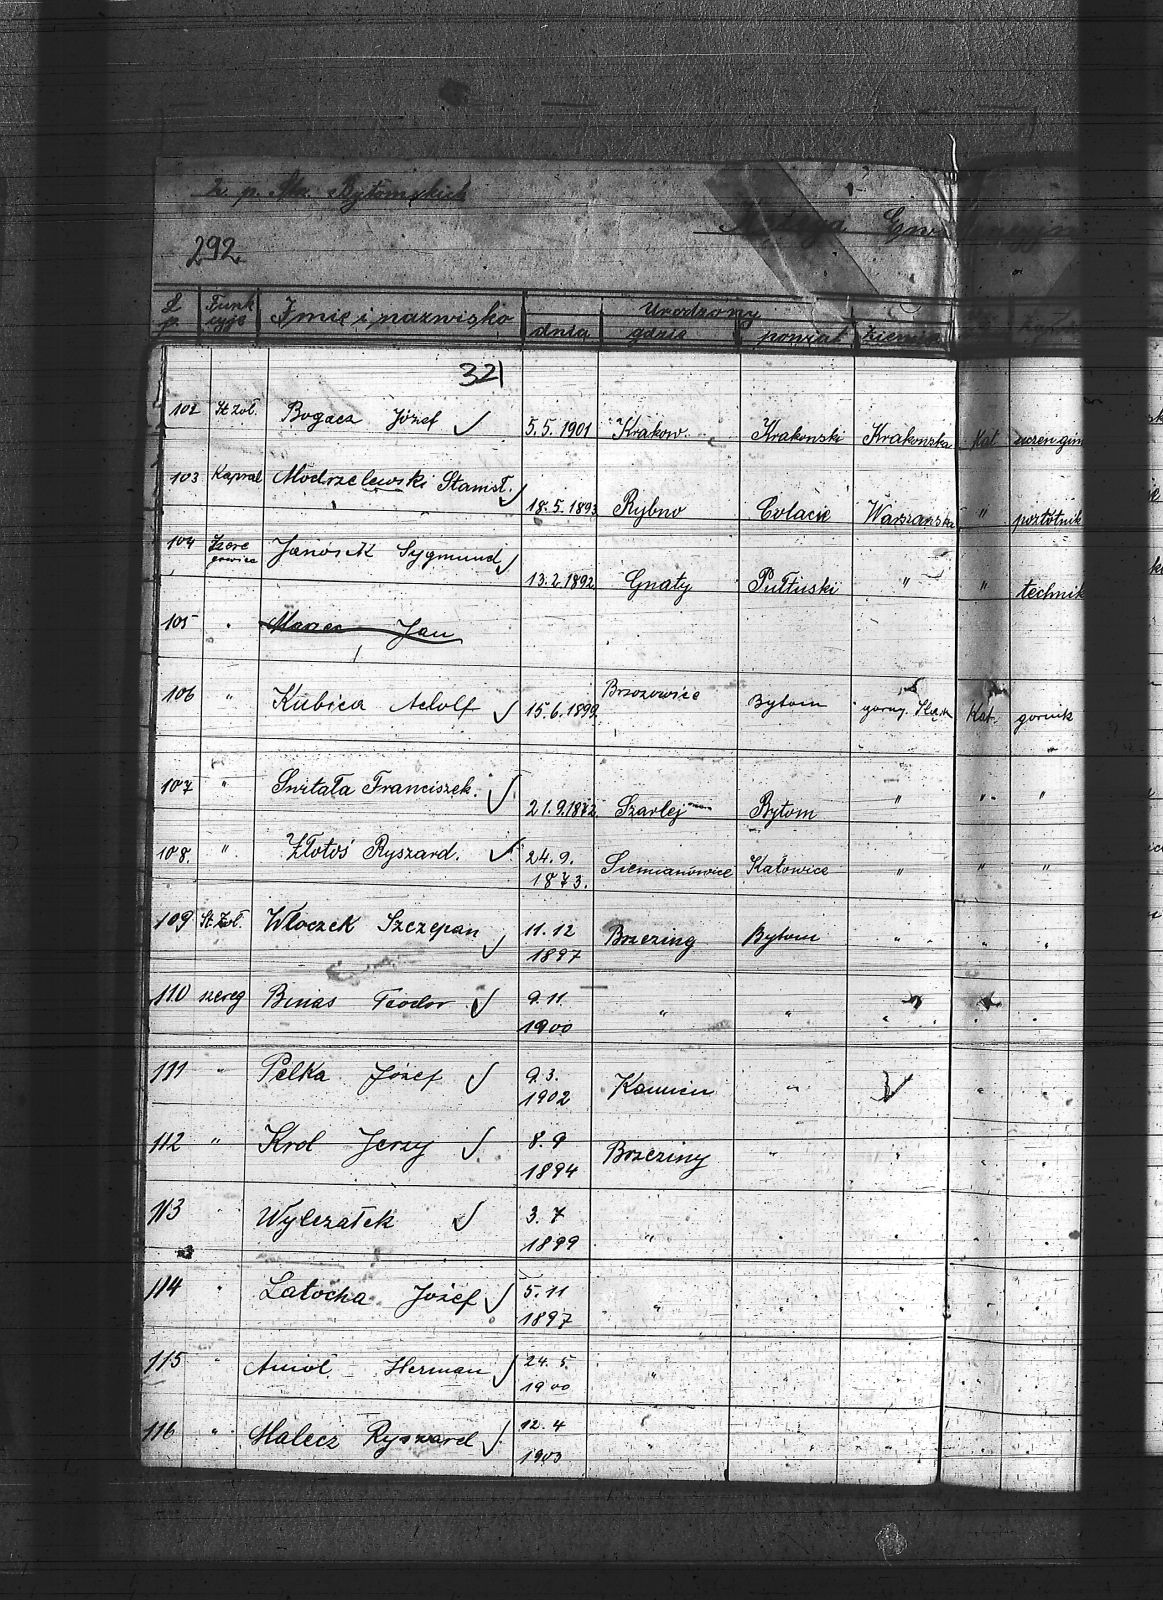 2. p. Bytomskich
292.
L. p. Funk cyje Imię i nazwisko Urodzony
dnia gdzie powiat ziemia
321
102 St. żoł. Bogacz Józef 5.5.1901 Krakow Krakowski Krakowska kat. uczen gim
103 Kapral Modrzelewski Stanisł. 18.5.1893 Rybno Warszawska "
104 Szere gowiec Janosik Sygmund 13.2.1892 Gnaty Pułtuski " " technik
105 " Jan
106 " Kubica Adolf 15.6.1899 Brzozowice Bytom gorny. Śląsk Kat. gornik
107 " Franciszek 21.9.1872 Szarlej Bytom " " "
108. " Złotoś Ryszard. 24.9. 1873. Siemianowice Katowice " " "
109 St. żoł. Włoczek Szczepan 11.12 1897 Brzeziny Bytom " " "
110 szereg Binas Teodor 9.11 1900 " " " " "
111 " Pelka Józef 9.3. 1902 Kamien " " "
112 " Krol Jerzy 8.9 1894 Brzeziny " " " "
113 " Wylezałek 3.7 1899 " " " " "
114 " Latocha Józef 5.11 1897 " " " " "
115 " Anioł Herman 24.5. 1900 " " " " "
116 " Malecz Ryszard 12.4 1903 " " " " "